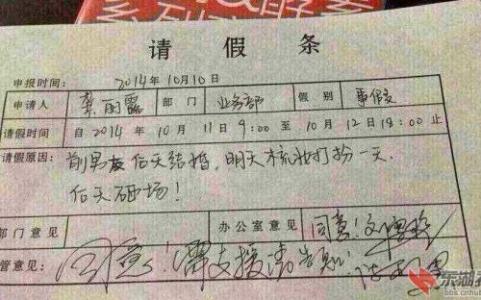 系列
请 假 条
申报时间： 2014年10月10日
申请人 龚丽露 部 门 业务部 假 别 事假
请假时间 自2014年 10月 11日9:00 至 10月 12日18:00 止
请假原因： 前男友后天结婚，明天梳妆打扮一天.
后天砸场！
部门意见 办公室意见 同意！
管意见： 同意！需支援请告知！
东湖
bbs.cnhub